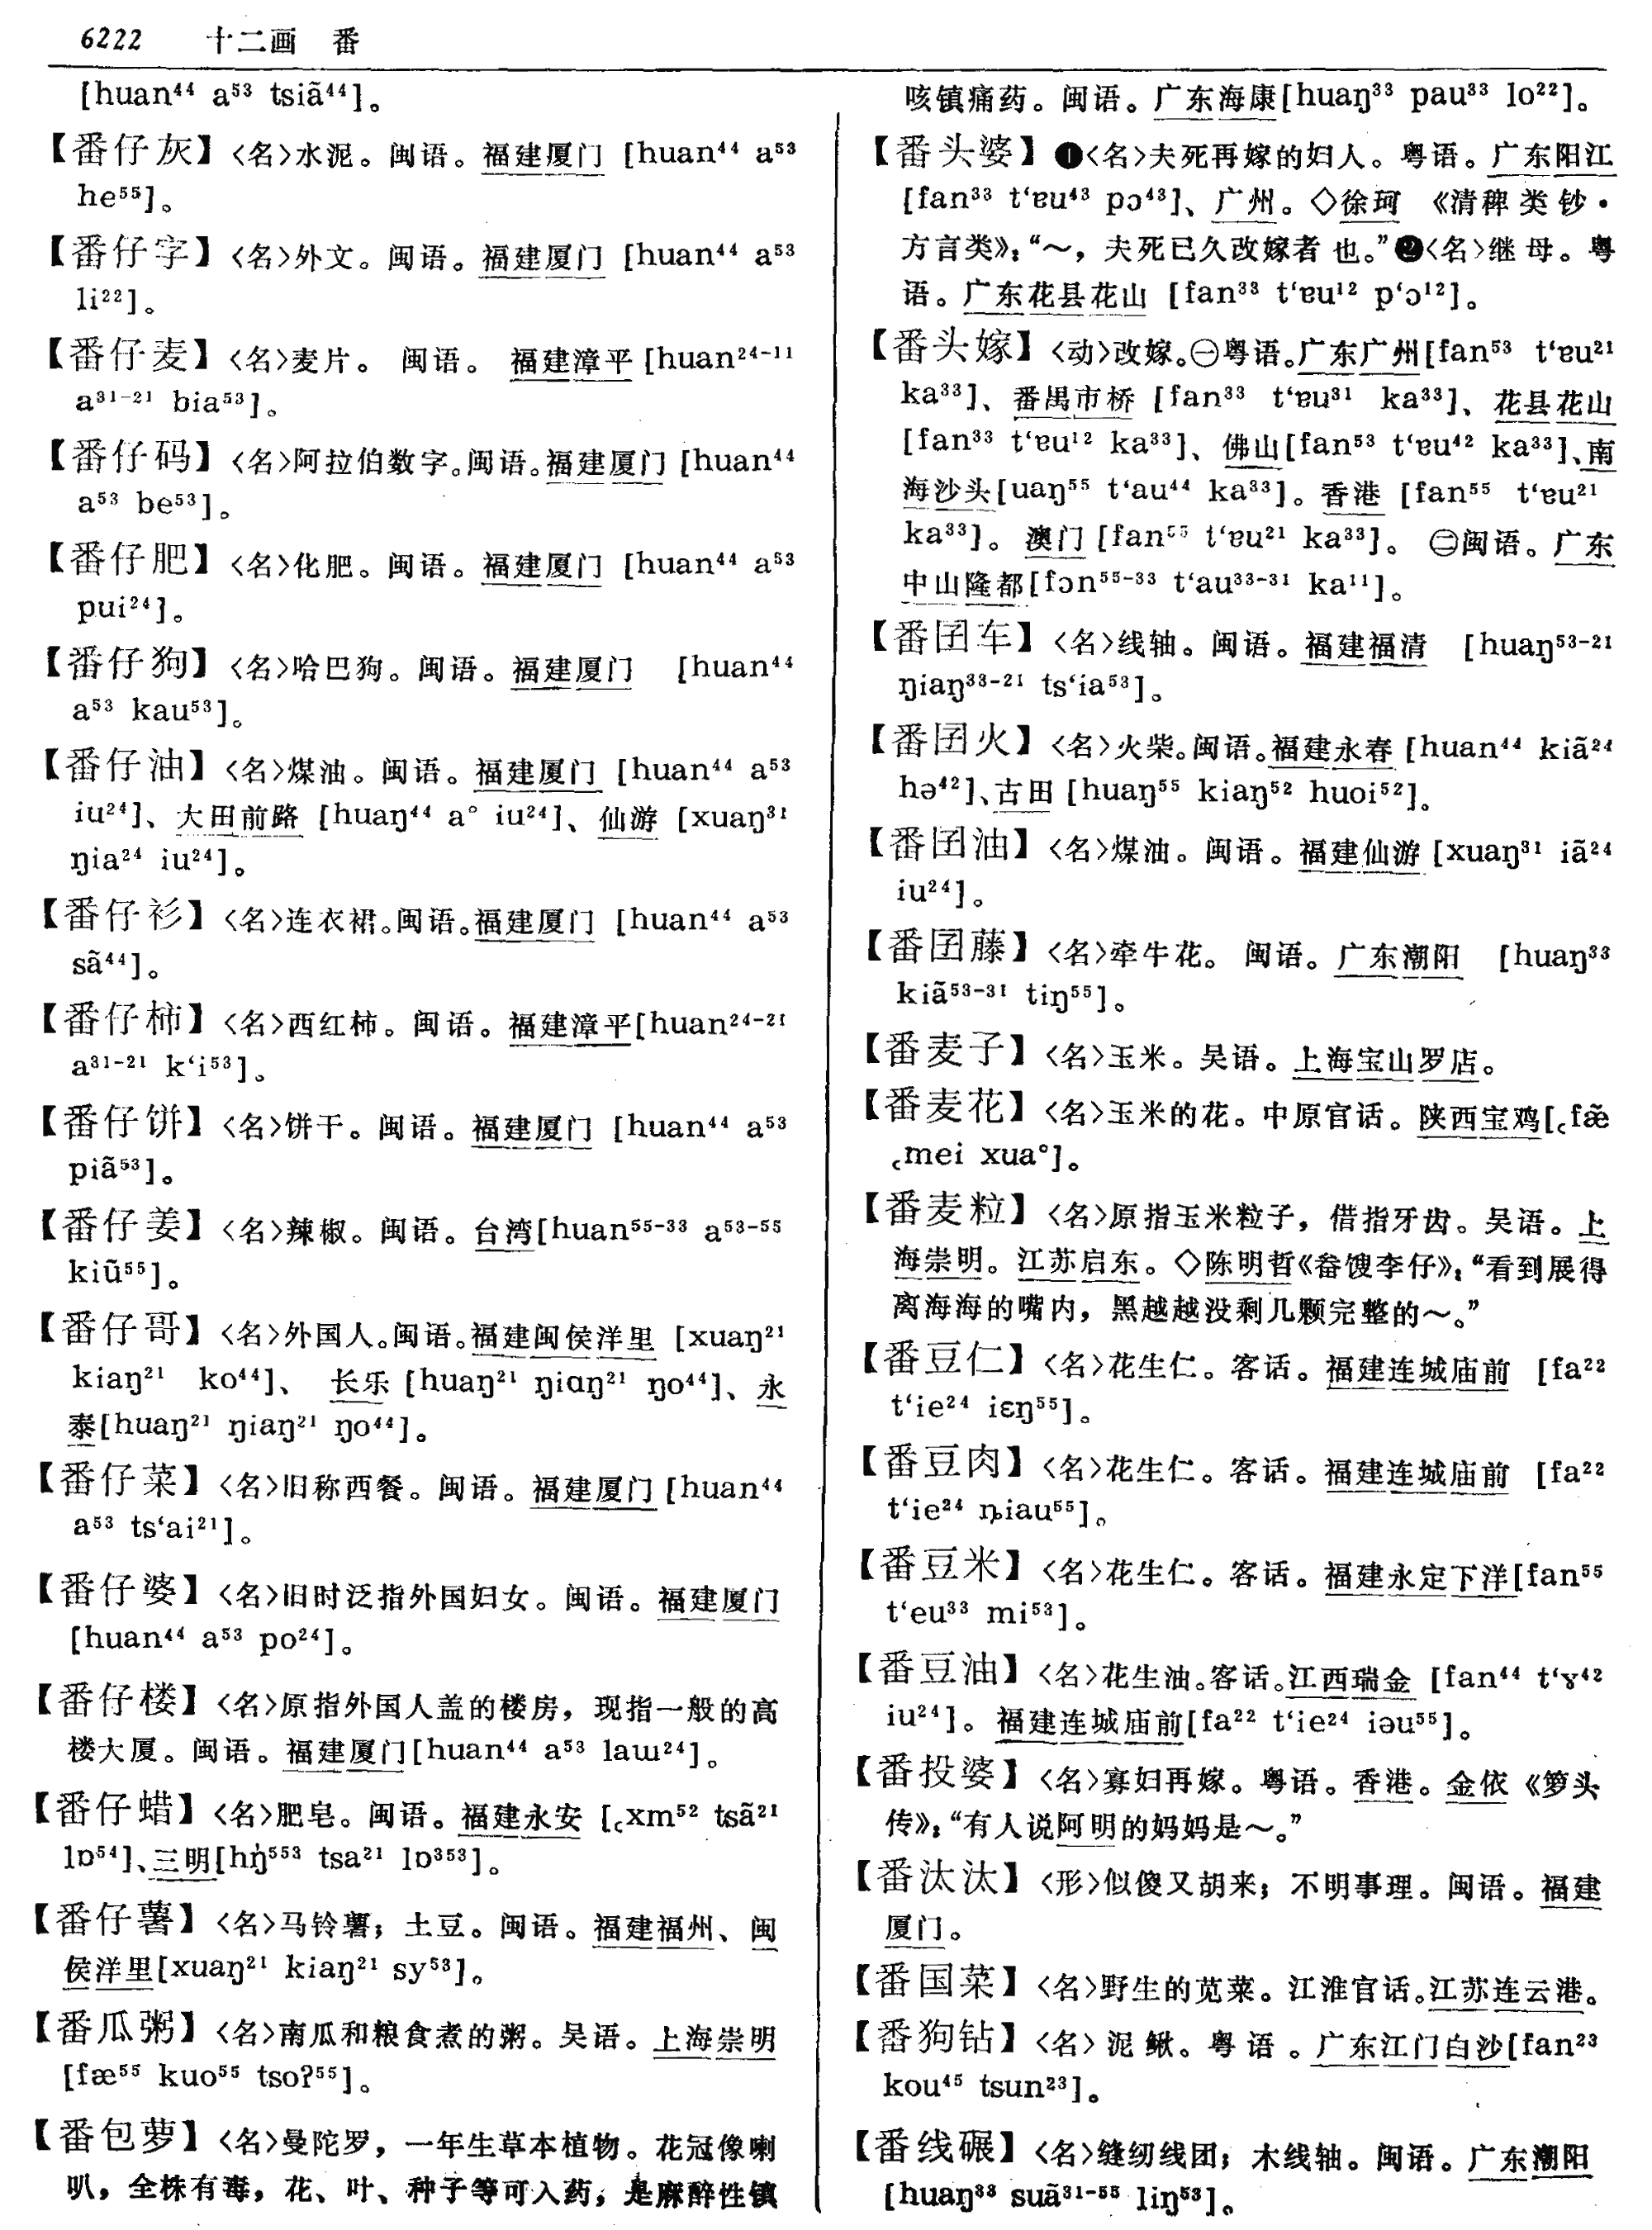 6222 十二画 番
[huan⁴⁴ a⁵³ tsiã⁴⁴]。
【番仔灰】〈名〉水泥。闽语。福建厦门 [huan⁴⁴ a⁵³
he⁵⁵]。
【番仔字】〈名〉外文。闽语。福建厦门 [huan⁴⁴ a⁵³
li²²]。
【番仔麦】〈名〉麦片。 闽语。 福建漳平 [huan²⁴⁻¹¹
a³¹⁻²¹ bia⁵³]。
【番仔码】〈名〉阿拉伯数字。闽语。福建厦门 [huan⁴⁴
a⁵³ be⁵³]。
【番仔肥】〈名〉化肥。闽语。福建厦门 [huan⁴⁴ a⁵³
pui²⁴]。
【番仔狗】〈名〉哈巴狗。闽语。福建厦门 [huan⁴⁴
a⁵³ kau⁵³]。
【番仔油】〈名〉煤油。闽语。福建厦门 [huan⁴⁴ a⁵³
iu²⁴]、大田前路 [huaŋ⁴⁴ a° iu²⁴]、仙游 [xuaŋ³¹
ŋia²⁴ iu²⁴]。
【番仔衫】〈名〉连衣裙。闽语。福建厦门 [huan⁴⁴ a⁵³
sã⁴⁴]。
【番仔柿】〈名〉西红柿。闽语。福建漳平[huan²⁴⁻²¹
a³¹⁻²¹ k‘i⁵³]。
【番仔饼】〈名〉饼干。闽语。福建厦门 [huan⁴⁴ a⁵³
piã⁵³]。
【番仔姜】〈名〉辣椒。闽语。台湾[huan⁵⁵⁻³³ a⁵³⁻⁵⁵
kiũ⁵⁵]。
【番仔哥】〈名〉外国人。闽语。福建闽侯洋里 [xuaŋ²¹
kiaŋ²¹ ko⁴⁴]、 长乐 [huaŋ²¹ ŋiɑŋ²¹ ŋo⁴⁴]、永
泰[huaŋ²¹ ŋiaŋ²¹ ŋo⁴⁴]。
【番仔菜】〈名〉旧称西餐。闽语。福建厦门 [huan⁴⁴
a⁵³ ts‘ai²¹]。
【番仔婆】〈名〉旧时泛指外国妇女。闽语。福建厦门
[huan⁴⁴ a⁵³ po²⁴]。
【番仔楼】〈名〉原指外国人盖的楼房，现指一般的高
楼大厦。闽语。福建厦门[huan⁴⁴ a⁵³ laɯ²⁴]。
【番仔蜡】〈名〉肥皂。闽语。福建永安 [꜀xm⁵² tsã²¹
lɒ⁵⁴]、三明[hŋ̍⁵⁵³ tsa²¹ lɒ³⁵³]。
【番仔薯】〈名〉马铃薯；土豆。闽语。福建福州、闽
侯洋里[xuaŋ²¹ kiaŋ²¹ sy⁵³]。
【番瓜粥】〈名〉南瓜和粮食煮的粥。吴语。上海崇明
[fæ⁵⁵ kuo⁵⁵ tsoʔ⁵⁵]。
【番包萝】〈名〉曼陀罗，一年生草本植物。花冠像喇
叭，全株有毒，花、叶、种子等可入药，是麻醉性镇
咳镇痛药。闽语。广东海康[huaŋ³³ pau³³ lo²²]。
【番头婆】❶〈名〉夫死再嫁的妇人。粤语。广东阳江
[fan³³ t‘ɐu⁴³ pɔ⁴³]、广州。◇徐珂 《清稗类钞·
方言类》：“～，夫死已久改嫁者也。”❷〈名〉继母。粤
语。广东花县花山 [fan³³ t‘ɐu¹² p‘ɔ¹²]。
【番头嫁】〈动〉改嫁。㊀粤语。广东广州[fan⁵³ t‘ɐu²¹
ka³³]、番禺市桥 [fan³³ t‘ɐu³¹ ka³³]、花县花山
[fan³³ t‘ɐu¹² ka³³]、佛山[fan⁵³ t‘ɐu⁴² ka³³]、南
海沙头[uaŋ⁵⁵ t‘au⁴⁴ ka³³]。香港 [fan⁵⁵ t‘ɐu²¹
ka³³]。澳门 [fan⁵⁵ t‘ɐu²¹ ka³³]。 ㊁闽语。广东
中山隆都[fɔn⁵⁵⁻³³ t‘au³³⁻³¹ ka¹¹]。
【番囝车】〈名〉线轴。闽语。福建福清 [huaŋ⁵³⁻²¹
ŋiaŋ³³⁻²¹ ts‘ia⁵³]。
【番囝火】〈名〉火柴。闽语。福建永春 [huan⁴⁴ kiã²⁴
hə⁴²]、古田 [huaŋ⁵⁵ kiaŋ⁵² huoi⁵²]。
【番囝油】〈名〉煤油。闽语。福建仙游 [xuaŋ³¹ iã²⁴
iu²⁴]。
【番囝藤】〈名〉牵牛花。 闽语。广东潮阳 [huaŋ³³
kiã⁵³⁻³¹ tiŋ⁵⁵]。
【番麦子】〈名〉玉米。吴语。上海宝山罗店。
【番麦花】〈名〉玉米的花。中原官话。陕西宝鸡[꜀fæ̃
꜀mei xua°]。
【番麦粒】〈名〉原指玉米粒子，借指牙齿。吴语。上
海崇明。江苏启东。◇陈明哲《畚馊李仔》：“看到展得
离海海的嘴内，黑越越没剩几颗完整的～。”
【番豆仁】〈名〉花生仁。客话。福建连城庙前 [fa²²
t‘ie²⁴ iɛŋ⁵⁵]。
【番豆肉】〈名〉花生仁。客话。福建连城庙前 [fa²²
t‘ie²⁴ ȵiau⁵⁵]。
【番豆米】〈名〉花生仁。客话。福建永定下洋[fan⁵⁵
t‘eu³³ mi⁵³]。
【番豆油】〈名〉花生油。客话。江西瑞金 [fan⁴⁴ t‘ɤ⁴²
iu²⁴]。福建连城庙前[fa²² t‘ie²⁴ iəu⁵⁵]。
【番投婆】〈名〉寡妇再嫁。粤语。香港。金依《箩头
传》：“有人说阿明的妈妈是～。”
【番汰汰】〈形〉似傻又胡来；不明事理。闽语。福建
厦门。
【番国菜】〈名〉野生的苋菜。江淮官话。江苏连云港。
【番狗钻】〈名〉泥鳅。粤语。广东江门白沙[fan²³
kou⁴⁵ tsun²³]。
【番线碾】〈名〉缝纫线团；木线轴。闽语。广东潮阳
[huaŋ³³ suã³¹⁻⁵⁵ liŋ⁵³]。